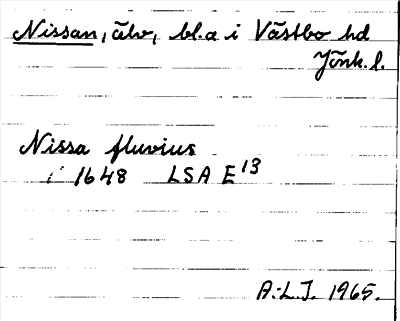 Nissan, älv, bl.a i Västbo hd
Jönk. l.
Nissa fluvius
i 1648 LSA E 13
A.L.J. 1965.